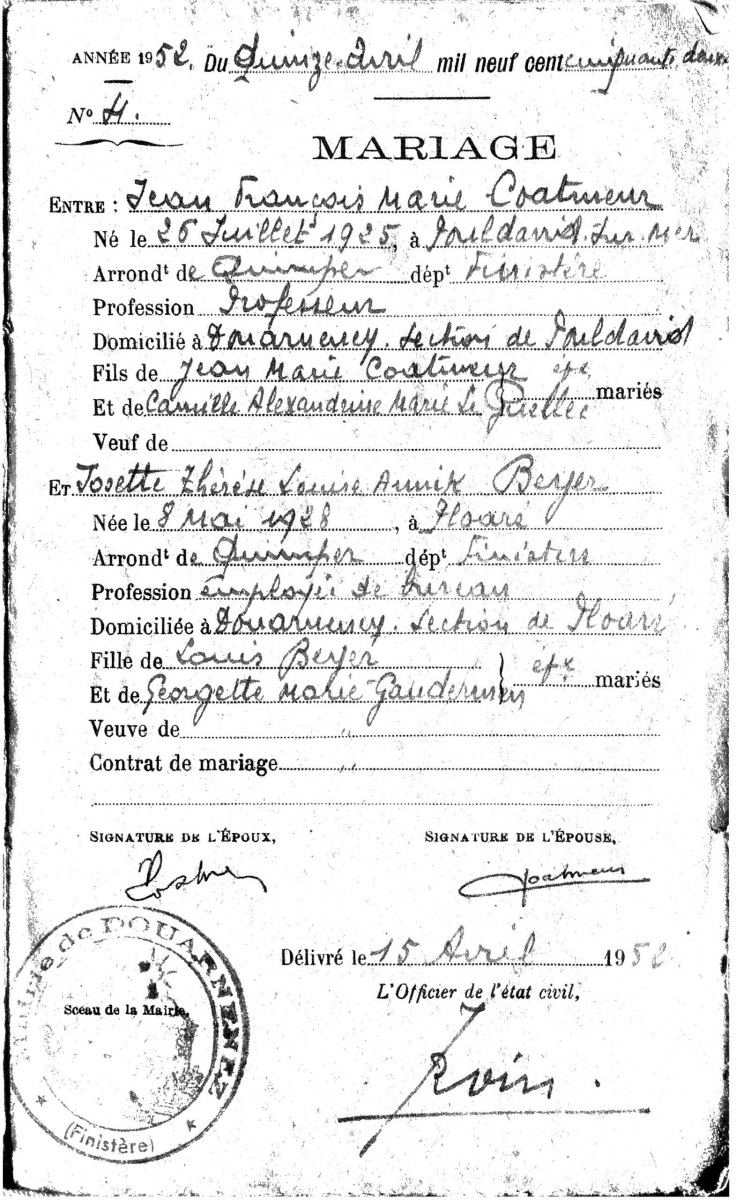 ANNÉE 1952. Du Quinze Avril mil neuf cent cinquante deux
No 4.
MARIAGE
ENTRE : Jean François Marie Coatmeur
Né le 26 Juillet 1925, à Pouldavid sur mer
Arrondt de Quimper dépt Finistère
Profession Professeur
Domicilié à Douarnenez. Section de Pouldavid
Fils de Jean Marie Coatmeur épx
Et de Camille Alexandrine Marie Le Guellec mariés
Veuf de
ET Josette Thérèse Louise Annik Beyer
Née le 8 Mai 1928, à Ploaré
Arrondt de Quimper dépt Finistère
Profession employée de bureau
Domiciliée à Douarnenez. Section de Ploaré
Fille de Louis Beyer épx
Et de Georgette Marie mariés
Veuve de "
Contrat de mariage "
SIGNATURE DE L'ÉPOUX, SIGNATURE DE L'ÉPOUSE,
Coatmeur
Délivré le 15 Avril 1952
L'Officier de l'état civil,
Sceau de la Mairie.
Mairie de DOUARNENEZ
(Finistère)